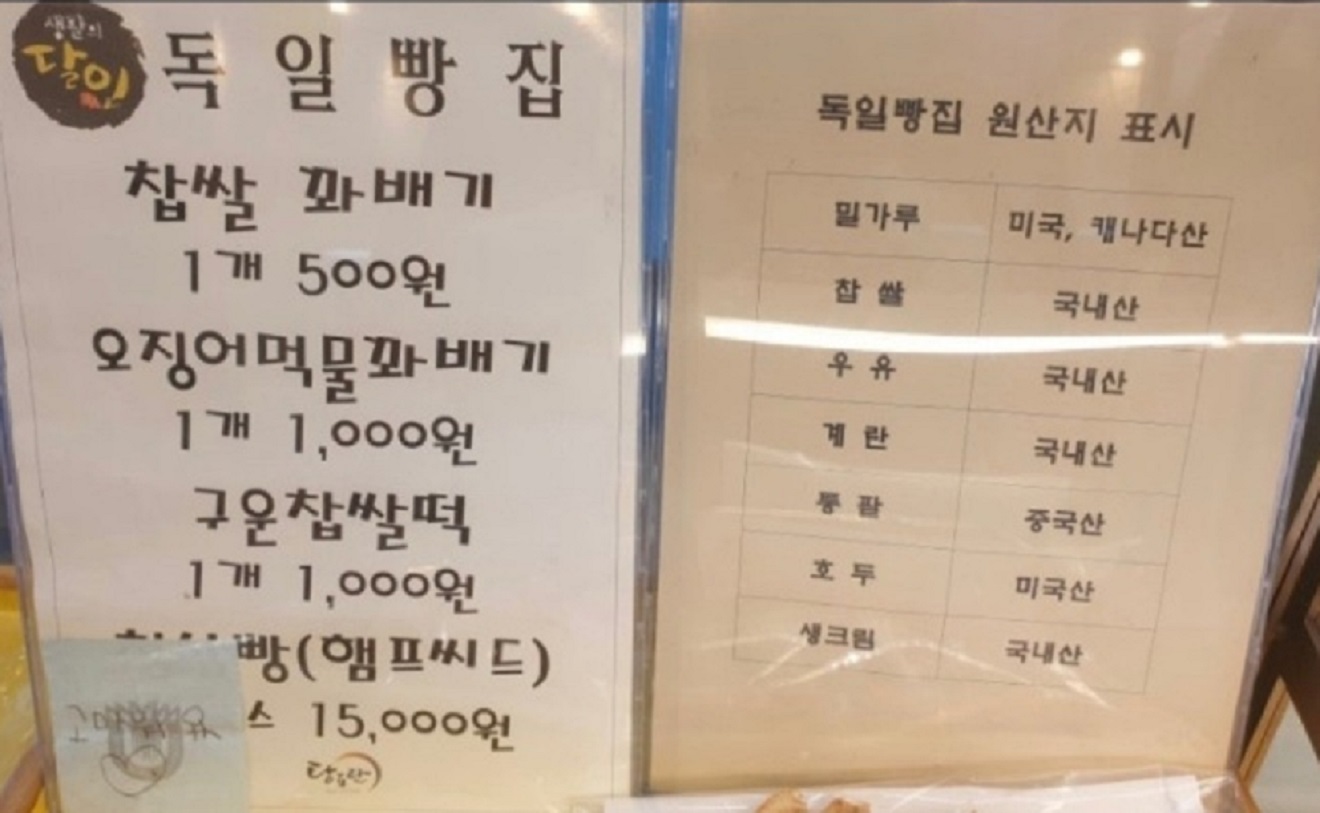 생활의
달인
독일빵집
찹쌀 꽈배기
1개 500원
오징어먹물꽈배기
1개 1,000원
구운찹쌀떡
1개 1,000원
빵(햄프씨드)
스 15,000원
독일빵집 원산지 표시
밀가루 미국, 캐나다산
찹쌀 국내산
우유 국내산
계란 국내산
통팥 중국산
호두 미국산
생크림 국내산